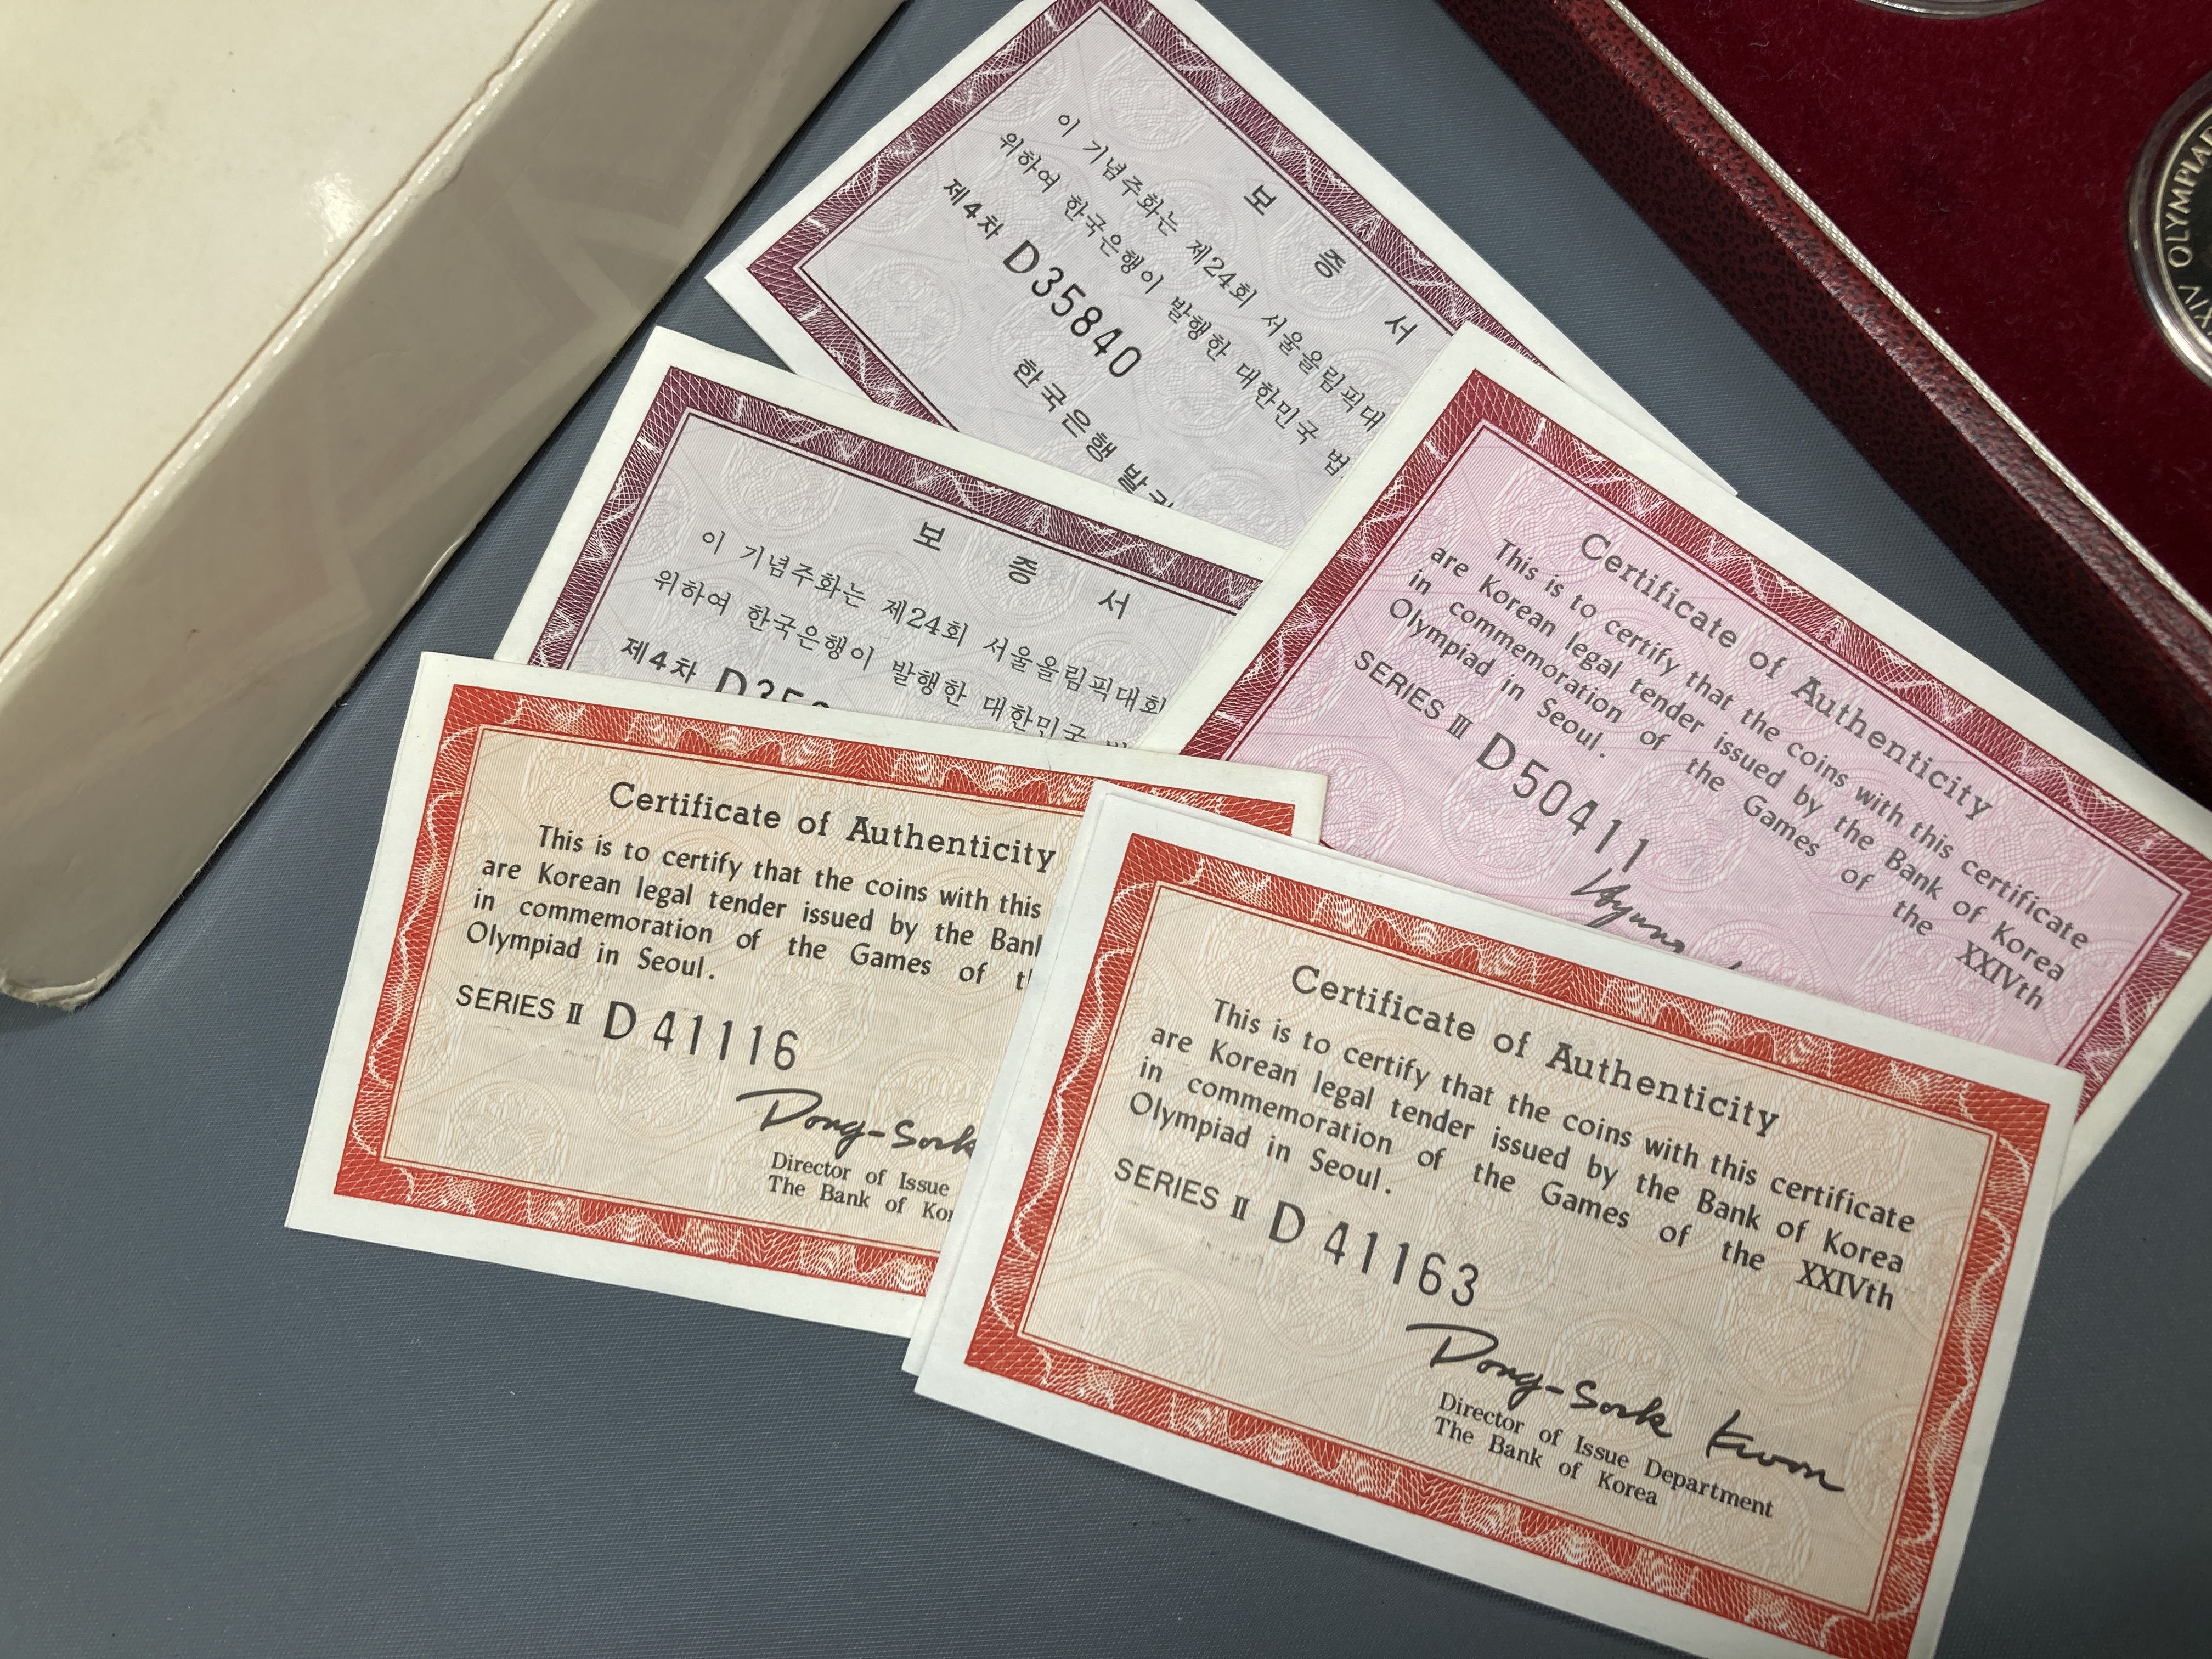 보 증 서
이 기념주화는 제24회 서울올림픽대
위하여 한국은행이 발행한 대한민국 법
제4차 D35840
한국은행 발
보 증 서
이 기념주화는 제24회 서울올림픽대회
위하여 한국은행이 발행한 대한민국
제4차
Certificate of Authenticity
This is to certify that the coins with this certificate
are Korean legal tender issued by the Bank of Korea
in commemoration of the Games of the XXIVth
Olympiad in Seoul.
SERIES III D50411
Certificate of Authenticity
This is to certify that the coins with this
are Korean legal tender issued by the Ban
in commemoration of the Games of t
Olympiad in Seoul.
SERIES II D 41116
Dong-Sook
Director of Issue
The Bank of Kor
Certificate of Authenticity
This is to certify that the coins with this certificate
are Korean legal tender issued by the Bank of Korea
in commemoration of the Games of the XXIVth
Olympiad in Seoul.
SERIES II D 41163
Dong-Sook Kwon
Director of Issue Department
The Bank of Korea
XXIV OLYMPIA